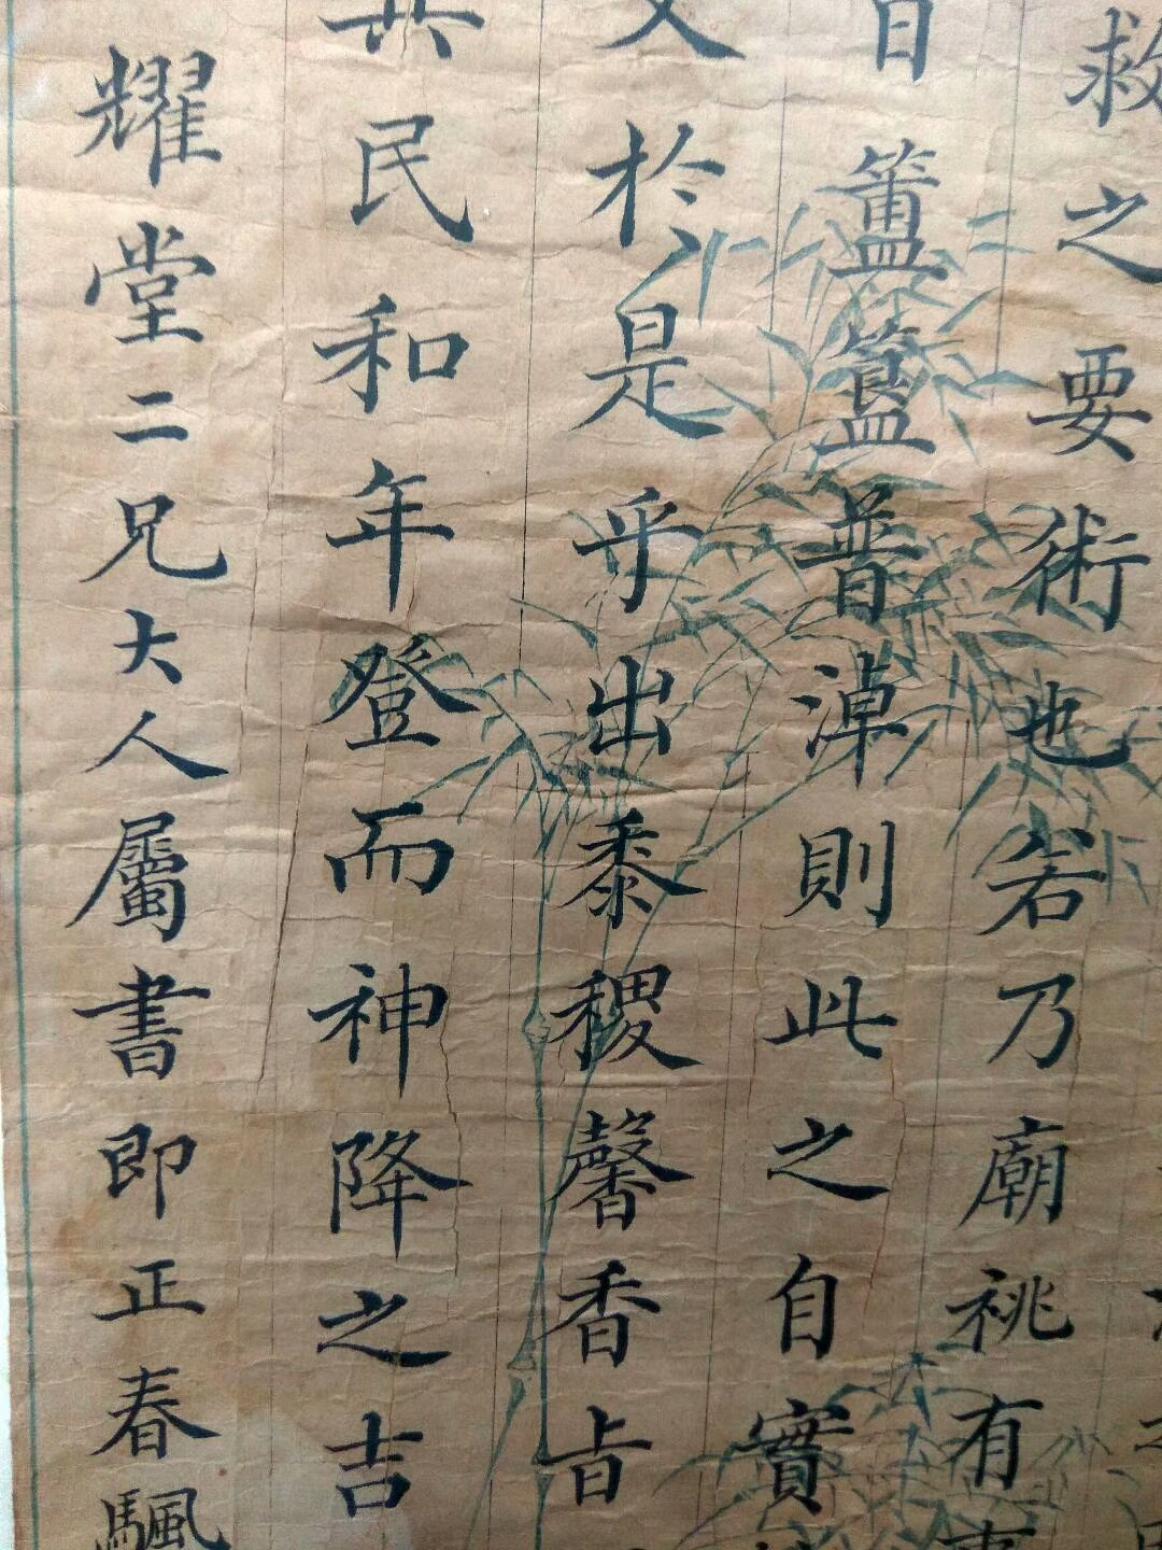 救之要術也若乃廟祧有事
日簠簋普淖則此之自實
又於是乎出黍稷馨香旨
共民和年登而神降之吉
耀堂二兄大人屬書即正春颿